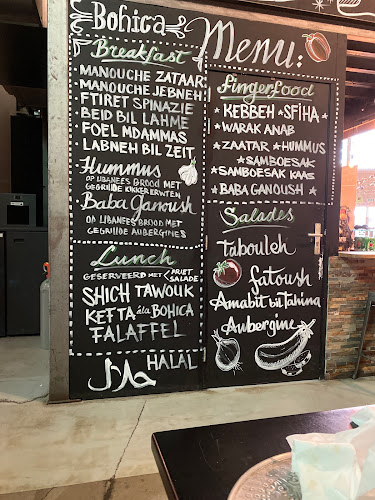 Bohica Menu:
Breakfast
• MANOUCHE ZATAAR
• MANOUCHE JEBNEH
• FTIRET SPINAZIE
• BEID BIL LAHME
• FOEL MDAMMAS
• LABNEH BIL ZEIT
Hummus
OP LIBANEES BROOD MET
GEGRILDE KIKKERERWTEN
Baba Ganoush
OP LIBANEES BROOD MET
GEGRILDE AUBERGINES
Lunch
GESERVEERD MET FRIET
SALADE
SHICH TAWOUK
KEFTA à la BOHICA
FALAFFEL
حلال HALAL
Fingerfood
KEBBEH * SFIHA *
* WARAK ANAB
* ZAATAR * HUMMUS
* SAMBOESAK
* SAMBOESAK KAAS
* BABA GANOUSH *
Salades
Tabouleh
Fatoush
Amabit bil Tahina
Aubergine